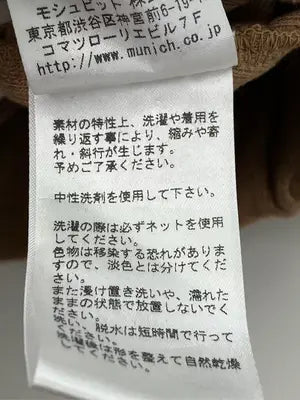 モシュピット 株
東京都渋谷区神宮前6-19-
コマツローリエビル7F
http://www.munich.co.jp
素材の特性上、洗濯や着用を
繰り返す事により、縮みや寄
れ・斜行が生じます。
予めご了承ください。
中性洗剤を使用して下さい。
洗濯の際は必ずネットを使用
してください。
色物は移染する恐れがありま
すので、淡色とは分けてくだ
さい。
また浸け置き洗いや、濡れた
ままの状態で放置しないでく
ださい。
脱水は短時間で行って
洗濯後は形を整えて自然乾燥
してください。